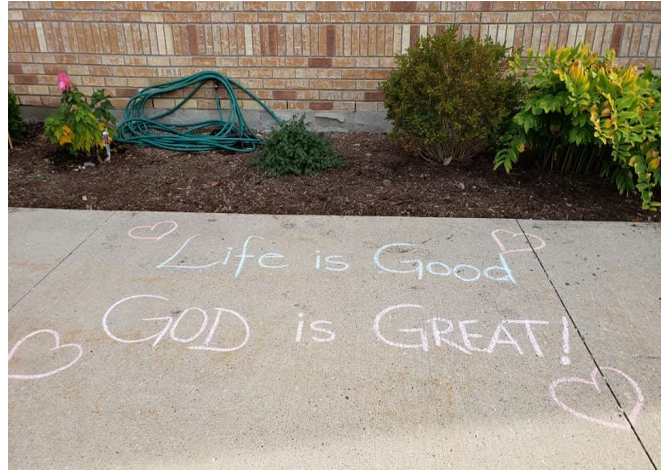 Life is Good
GOD is GREAT!